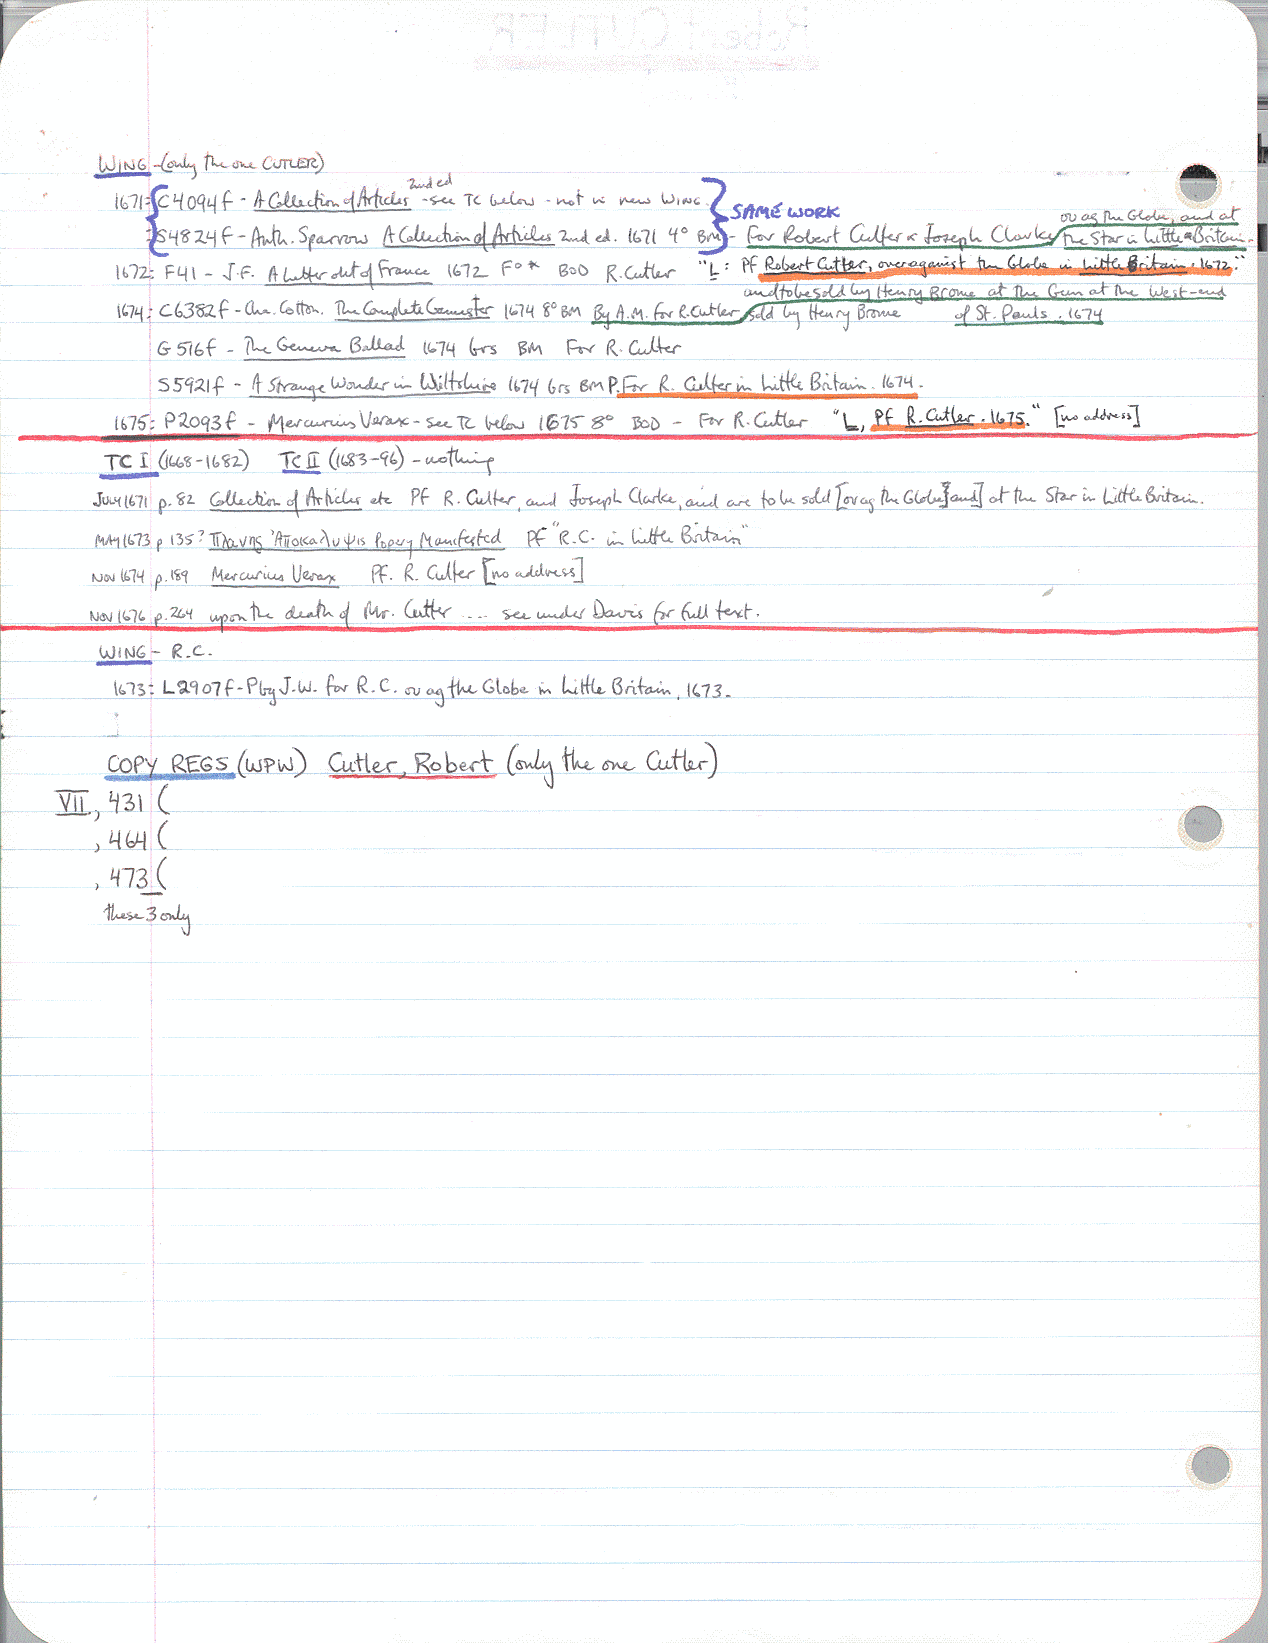 WING - (only the one CUTLER)
1671: C4094f - A Collection of Articles 2nd ed - see TC below - not in new WING.
SAME WORK
ov ag the Globe, and at
: S4824f - Anth. Sparrow A Collection of Articles 2nd ed. 1671 4° BM - For Robert Cutler & Joseph Clarke the Star in Little Britain.
1672: F41 - J.F. A Letter out of France 1672 F° * BOD R. Cutler "L: PF Robert Cutler, overagainst the Globe in Little Britain. 1672."
and to be sold by Henry Brome at the Gun at the West-end
1674: C6382f - Cha. Cotton. The Complete Gamester 1674 8° BM By A.M. for R. Cutler sold by Henry Brome of St. Pauls. 1674
G516f - The Geneva Ballad 1674 brs BM For R. Cutler
S5921f - A Strange Wonder in Wiltshire 1674 brs BM P. For R. Cutler in Little Britain. 1674.
1675: P2093f - Mercurius Verax - see TC below 1675 8° BOD - For R. Cutler "L, PF R. Cutler. 1675." [no address]
TC I (1668-1682) TC II (1683-96) - nothing
JULY 1671 p. 82 Collection of Articles etc PF R. Cutler, and Joseph Clarke, and are to be sold [ov ag the Globe] and] at the Star in Little Britain.
MAY 1673 p 135? Πλανης Ἀποκαλυψις Popery Manifested PF "R.C. in Little Britain"
NOV 1674 p. 189 Mercurius Verax PF. R. Cutler [no address]
NOV 1676 p. 264 upon the death of Mr. Cutter .... see under Davis for full text.
WING - R.C.
1673: L2907f - P by J.W. for R.C. ov ag the Globe in Little Britain, 1673.
COPY REGS (WPW) Cutler, Robert (only the one Cutler)
VII, 431 (
, 464 (
, 473 (
these 3 only